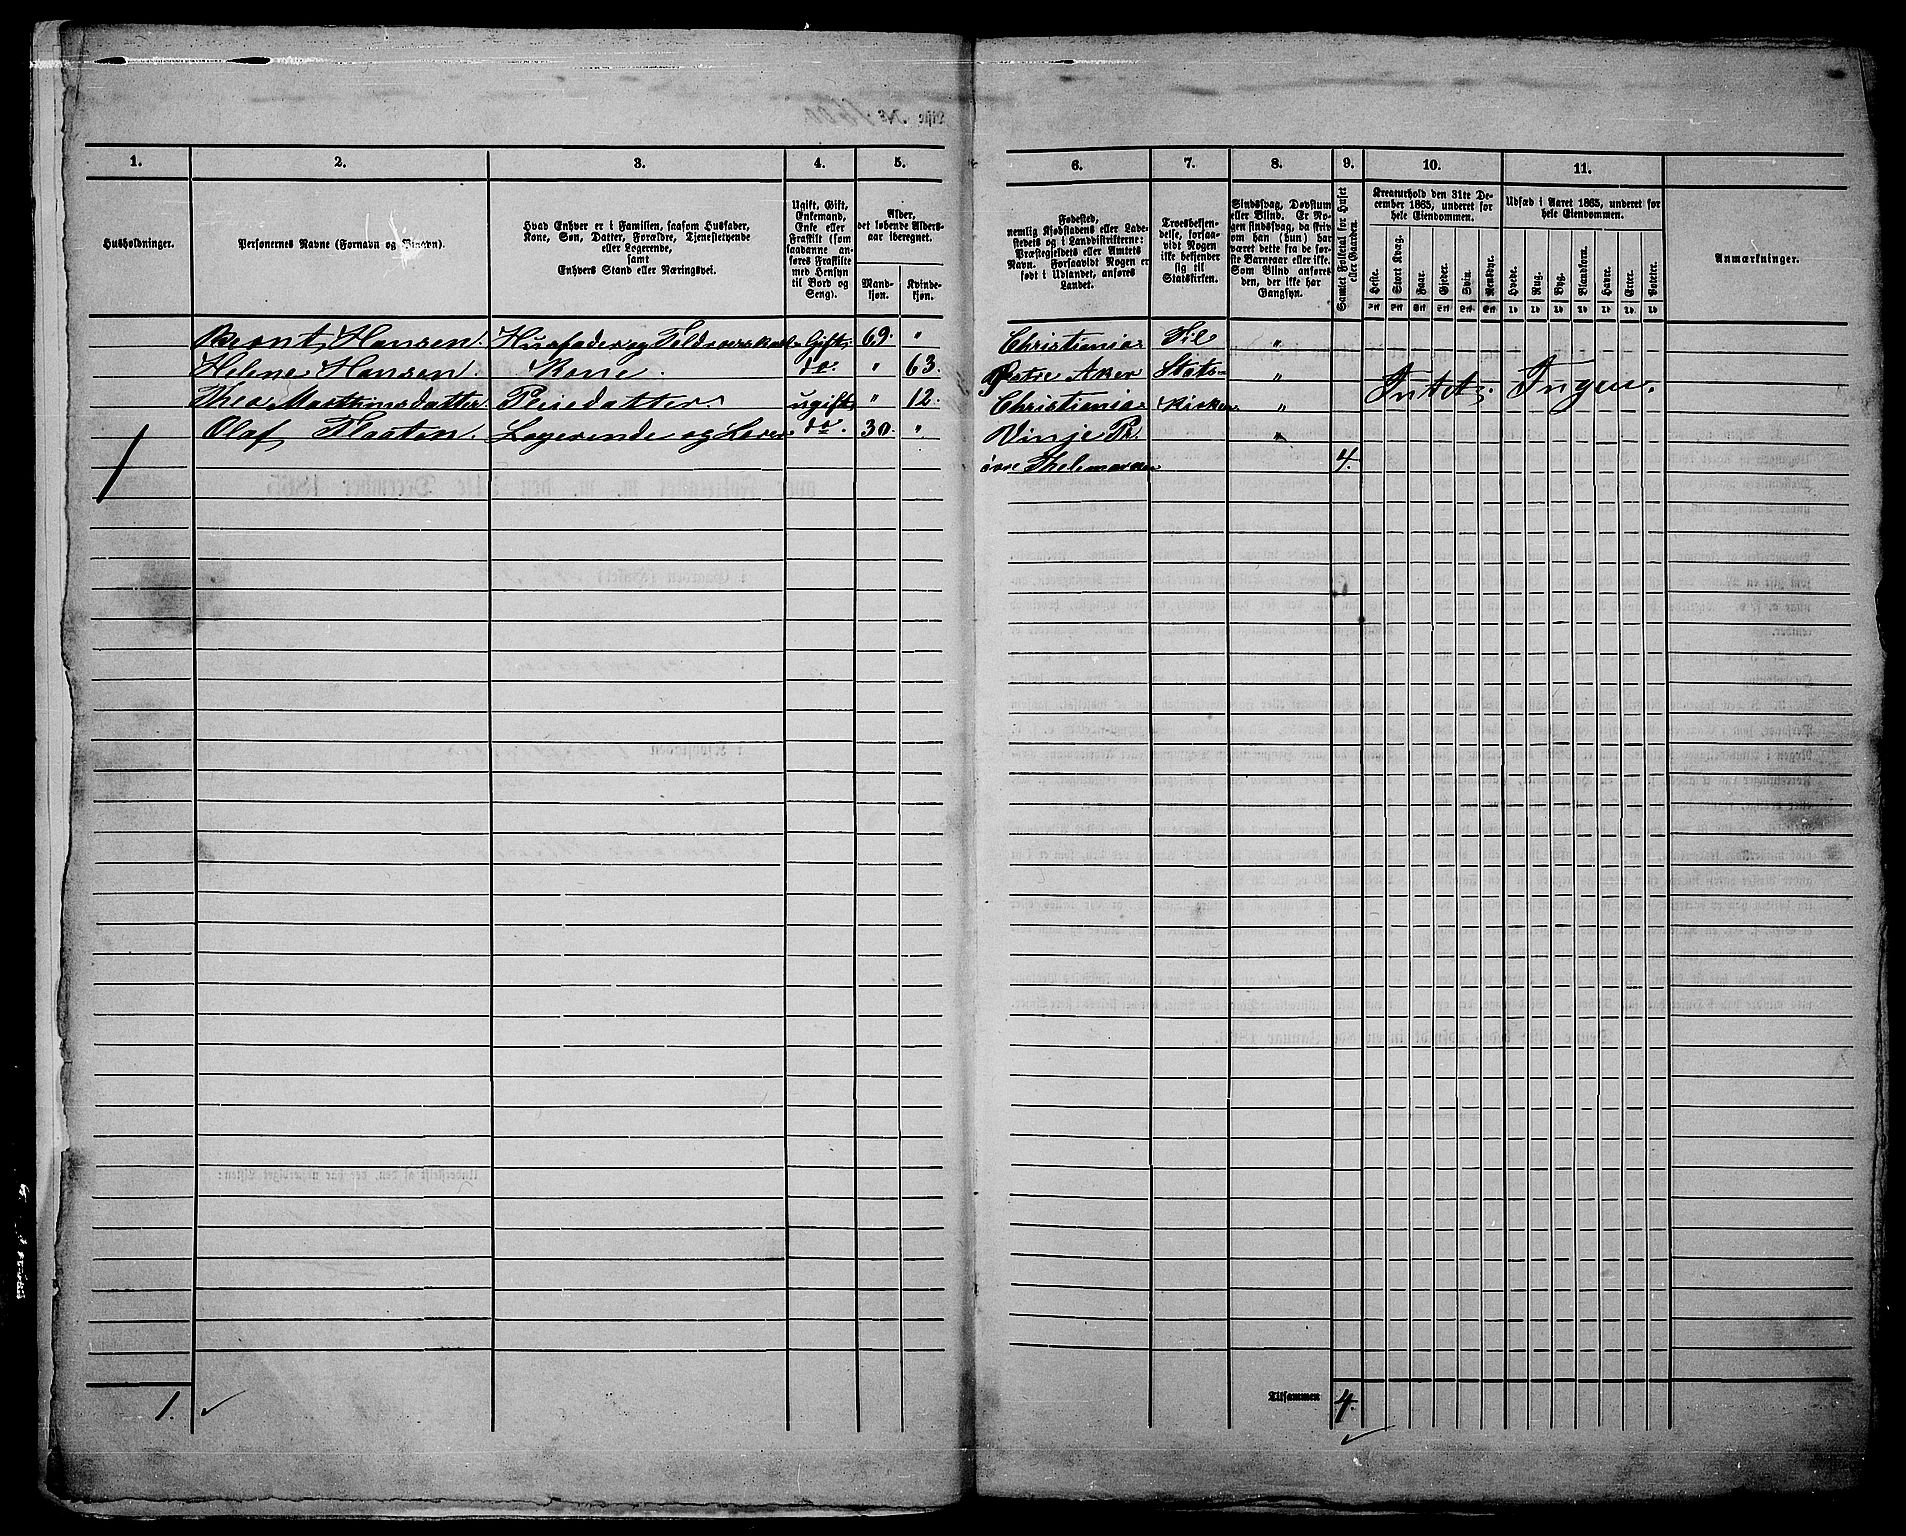 1.
2.
3.
4.
5.
Husholdninger.
Personernes Navne (Fornavn og Tilnavn).
Hvad Enhver er i Familien, saasom Husfader,
Kone, Søn, Datter, Forældre, Tjenestetyende
eller Logerende,
samt
Enhvers Stand eller Næringsvei.
Ugift, Gift,
Enkemand,
Enke eller
Fraskilt (som
saadanne an-
føres Fraskilte
med Hensyn
til Bord og
Seng).
Alder,
det løbende Alders-
aar iberegnet.
Mand-
kjøn.
Kvinde-
kjøn.
Bernt Hansen. Husfader og Gift 69. "
Helene Hansen. Kone. do. " 63.
Thea Martinsdatter Pleiedatter. ugift " 12.
Olaf Flaaten. Logerende og do. 30. "
1.
6.
7.
8.
9.
10.
11.
Fødested,
nemlig Kjøbstadens eller Lade-
stedets og i Landdistrikterne:
Præstegjeldets eller Amtets
Navn. Forsaavidt Nogen er
født i Udlandet, anføres
Landet.
Troesbekjen-
delse, forsaa-
vidt Nogen
ikke bekjender
sig til
Statskirken.
Sindssvag, Døvstum
eller Blind. Er No-
gen sindssvag, da skriv
om han (hun) har
været dette fra de før-
ste Barneaar eller ikke.
Som Blind anføres
den, der ikke har
Gangsyn.
Samlet Folketal for Huset
eller Gaarden.
Kreaturhold den 31te De-
cember 1865, underet for
hele Eiendommen.
Heste. Stort Kvæg. Faar. Gjeder. Sviin. Rensdyr.
Udsæd i Aaret 1865, underet for
hele Eiendommen.
Hvede. Rug. Byg. Blandkorn. Havre. Erter. Poteter.
Anmærkninger.
Christiania Til "
Aker Stats- " Intet. Ingen.
Christiania kirken. "
Vinje Pr. "
øvre Thelemarken 4.
Tilsammen 4.